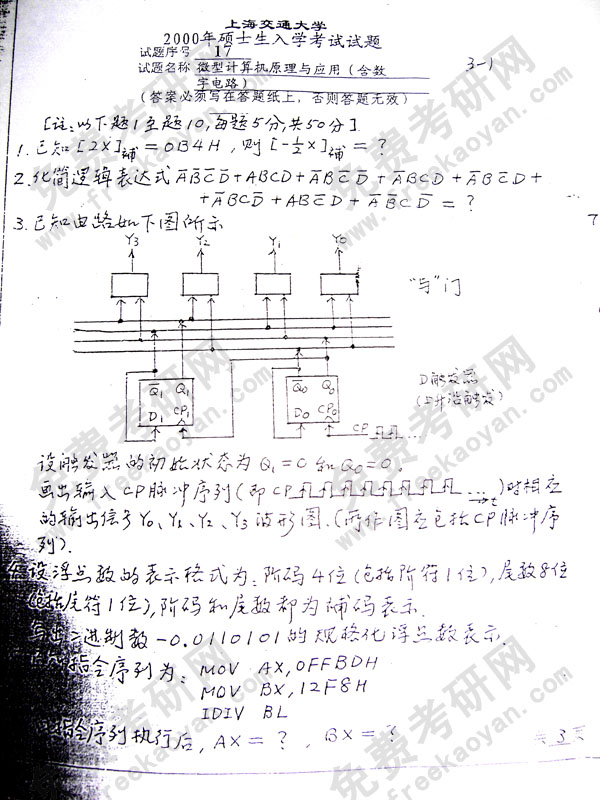 上海交通大学
2000年硕士生入学考试试题
试题序号 17
试题名称 微型计算机原理与应用(含数
字电路)
3-1
(答案必须写在答题纸上,否则答题无效)
[注:以下题1至题10,每题5分,共50分].
1. 已知[2X]补=0B4H,则[-½X]补=?
2. 化简逻辑表达式 A̅B̅C̅D̅+ABCD+A̅BC̅D+A̅BCD+AB̅C̅D+
+A̅BCD̅+ABC̅D+A̅B̅CD̅=?
3. 已知电路如下图所示
7
Y3 Y2 Y1 Y0
"与"门
Q̅1 Q1 Q̅0 Q0
D1 CP1 D0 CP0
D触发器
(上升沿触发)
CP
设触发器的初始状态为Q1=0和Q0=0。
画出输入CP脉冲序列(即CP ...)时相应
的输出信号Y0、Y1、Y2、Y3波形图.(所作图应包括CP脉冲序
列).
设浮点数的表示格式为:阶码4位(包括阶符1位),尾数8位
(包括尾符1位),阶码和尾数都为补码表示.
写出二进制数-0.0110101的规格化浮点数表示.
指令序列为: MOV AX,0FFBDH
MOV BX,12F8H
IDIV BL
指令序列执行后,AX=?,BX=?
共3页
免费考研网
freekaoyan.com